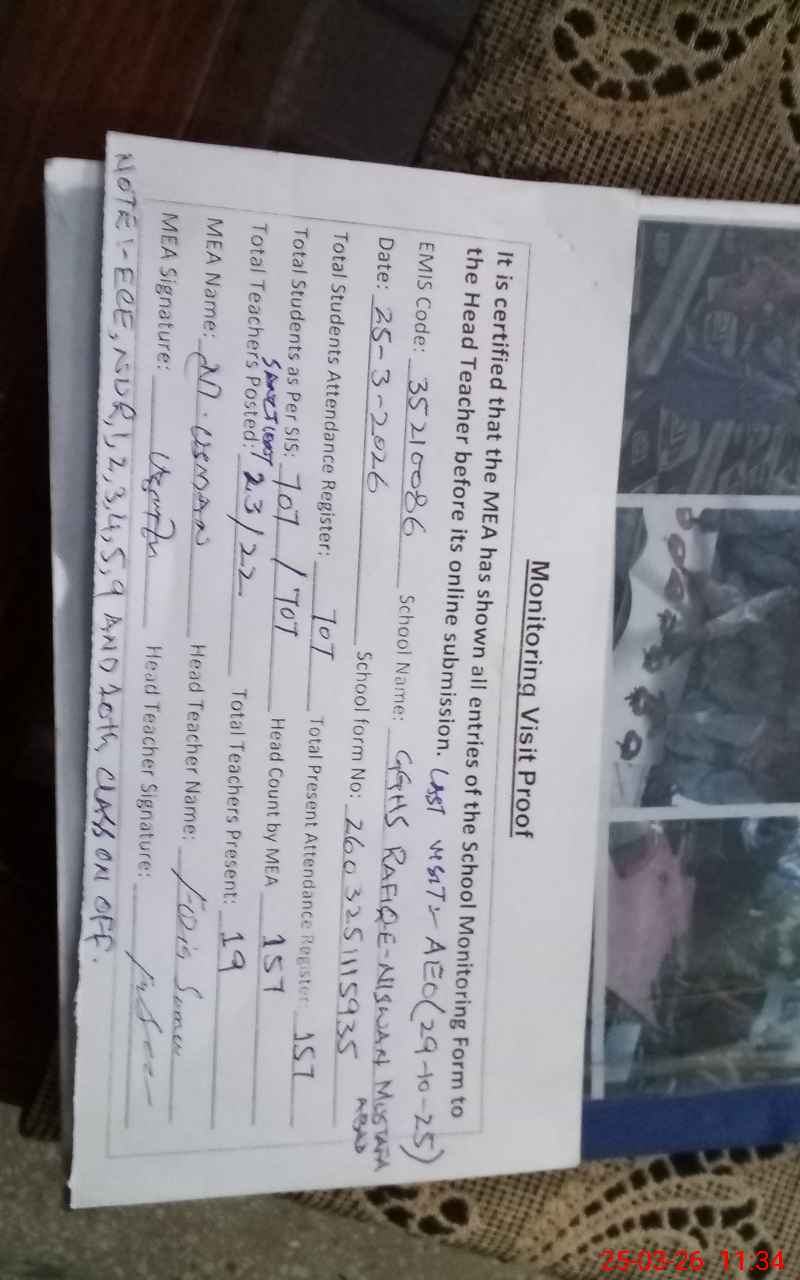 Monitoring Visit Proof
It is certified that the MEA has shown all entries of the School Monitoring Form to
the Head Teacher before its online submission. LAST VISIT :- AEO (29-10-25)
EMIS Code: 35210086 School Name: GGHS RAFIQE-NISWAN MUSTAFA ABAD
Date: 25-3-2026 School form No: 2603251115935
Total Students Attendance Register: 707 Total Present Attendance Register: 157
Total Students as Per SIS: 707 / 707 Head Count by MEA 157
SANCTIONED
Total Teachers Posted: 23/22 Total Teachers Present: 19
MEA Name: M. USMAN Head Teacher Name:
MEA Signature: Head Teacher Signature:
NOTE :- ECE, NUR, 1, 2, 3, 4, 5, 9 AND 10th CLASS ON OFF.
25-03-26 11:34